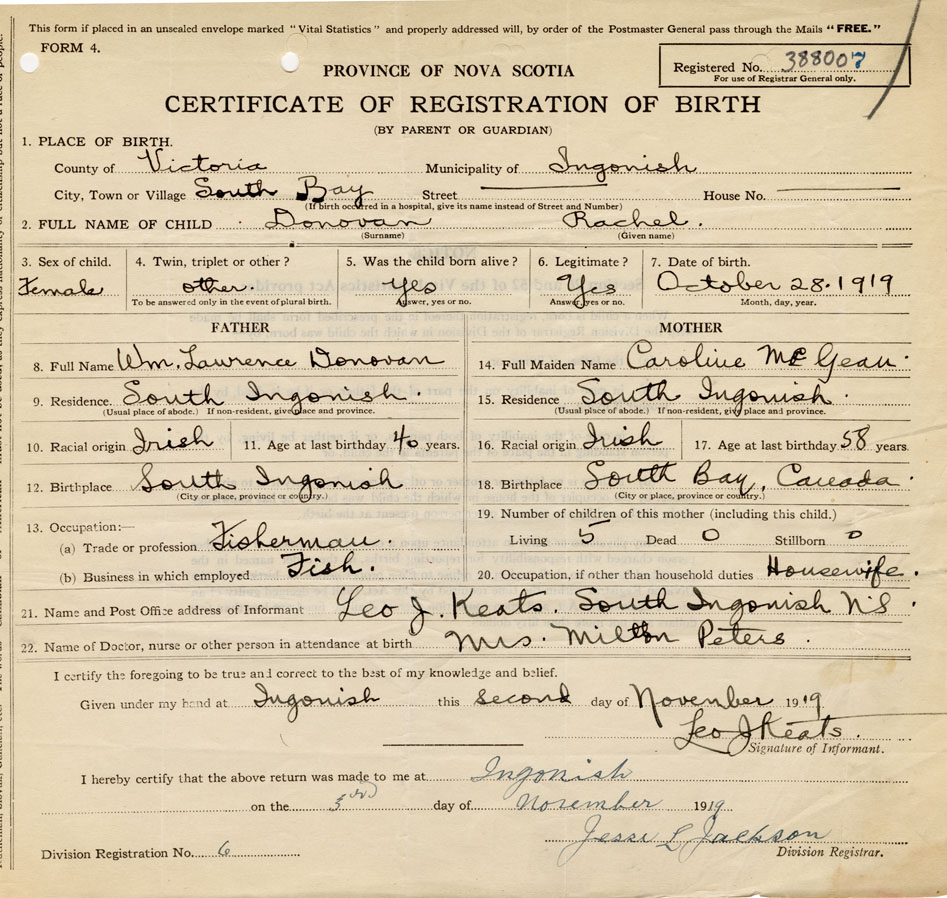 This form if placed in an unsealed envelope marked "Vital Statistics" and properly addressed will, by order of the Postmaster General pass through the Mails "FREE."
FORM 4.
Registered No. 388007
For use of Registrar General only.
PROVINCE OF NOVA SCOTIA
CERTIFICATE OF REGISTRATION OF BIRTH
(BY PARENT OR GUARDIAN)
1. PLACE OF BIRTH.
County of Victoria Municipality of Ingonish
City, Town or Village South Bay Street House No.
(If birth occurred in a hospital, give its name instead of Street and Number)
2. FULL NAME OF CHILD Donovan Rachel.
(Surname) (Given name)
3. Sex of child. 4. Twin, triplet or other? 5. Was the child born alive? 6. Legitimate? 7. Date of birth.
Female other. Yes Yes October 28. 1919
To be answered only in the event of plural birth. Answer, yes or no. Answer, yes or no. Month, day, year.
FATHER MOTHER
8. Full Name Wm. Lawrence Donovan 14. Full Maiden Name Caroline McGean.
9. Residence. South Ingonish. 15. Residence South Ingonish.
(Usual place of abode.) If non-resident, give place and province. (Usual place of abode.) If non-resident, give place and province.
10. Racial origin Irish 11. Age at last birthday 40 years. 16. Racial origin Irish 17. Age at last birthday 38 years.
12. Birthplace South Ingonish 18. Birthplace South Bay, Canada
(City or place, province or country.) (City or place, province or country.)
13. Occupation:— 19. Number of children of this mother (including this child.)
(a) Trade or profession Fisherman. Living 5 Dead 0 Stillborn 0
(b) Business in which employed Fish. 20. Occupation, if other than household duties Housewife.
21. Name and Post Office address of Informant Leo J. Keats. South Ingonish NS.
22. Name of Doctor, nurse or other person in attendance at birth Mrs. Milton Peters.
I certify the foregoing to be true and correct to the best of my knowledge and belief.
Given under my hand at Ingonish this second day of November 1919
Leo J Keats.
Signature of Informant.
I hereby certify that the above return was made to me at Ingonish
on the day of November 1919
Jesse L Jackson
Division Registration No. 6 Division Registrar.